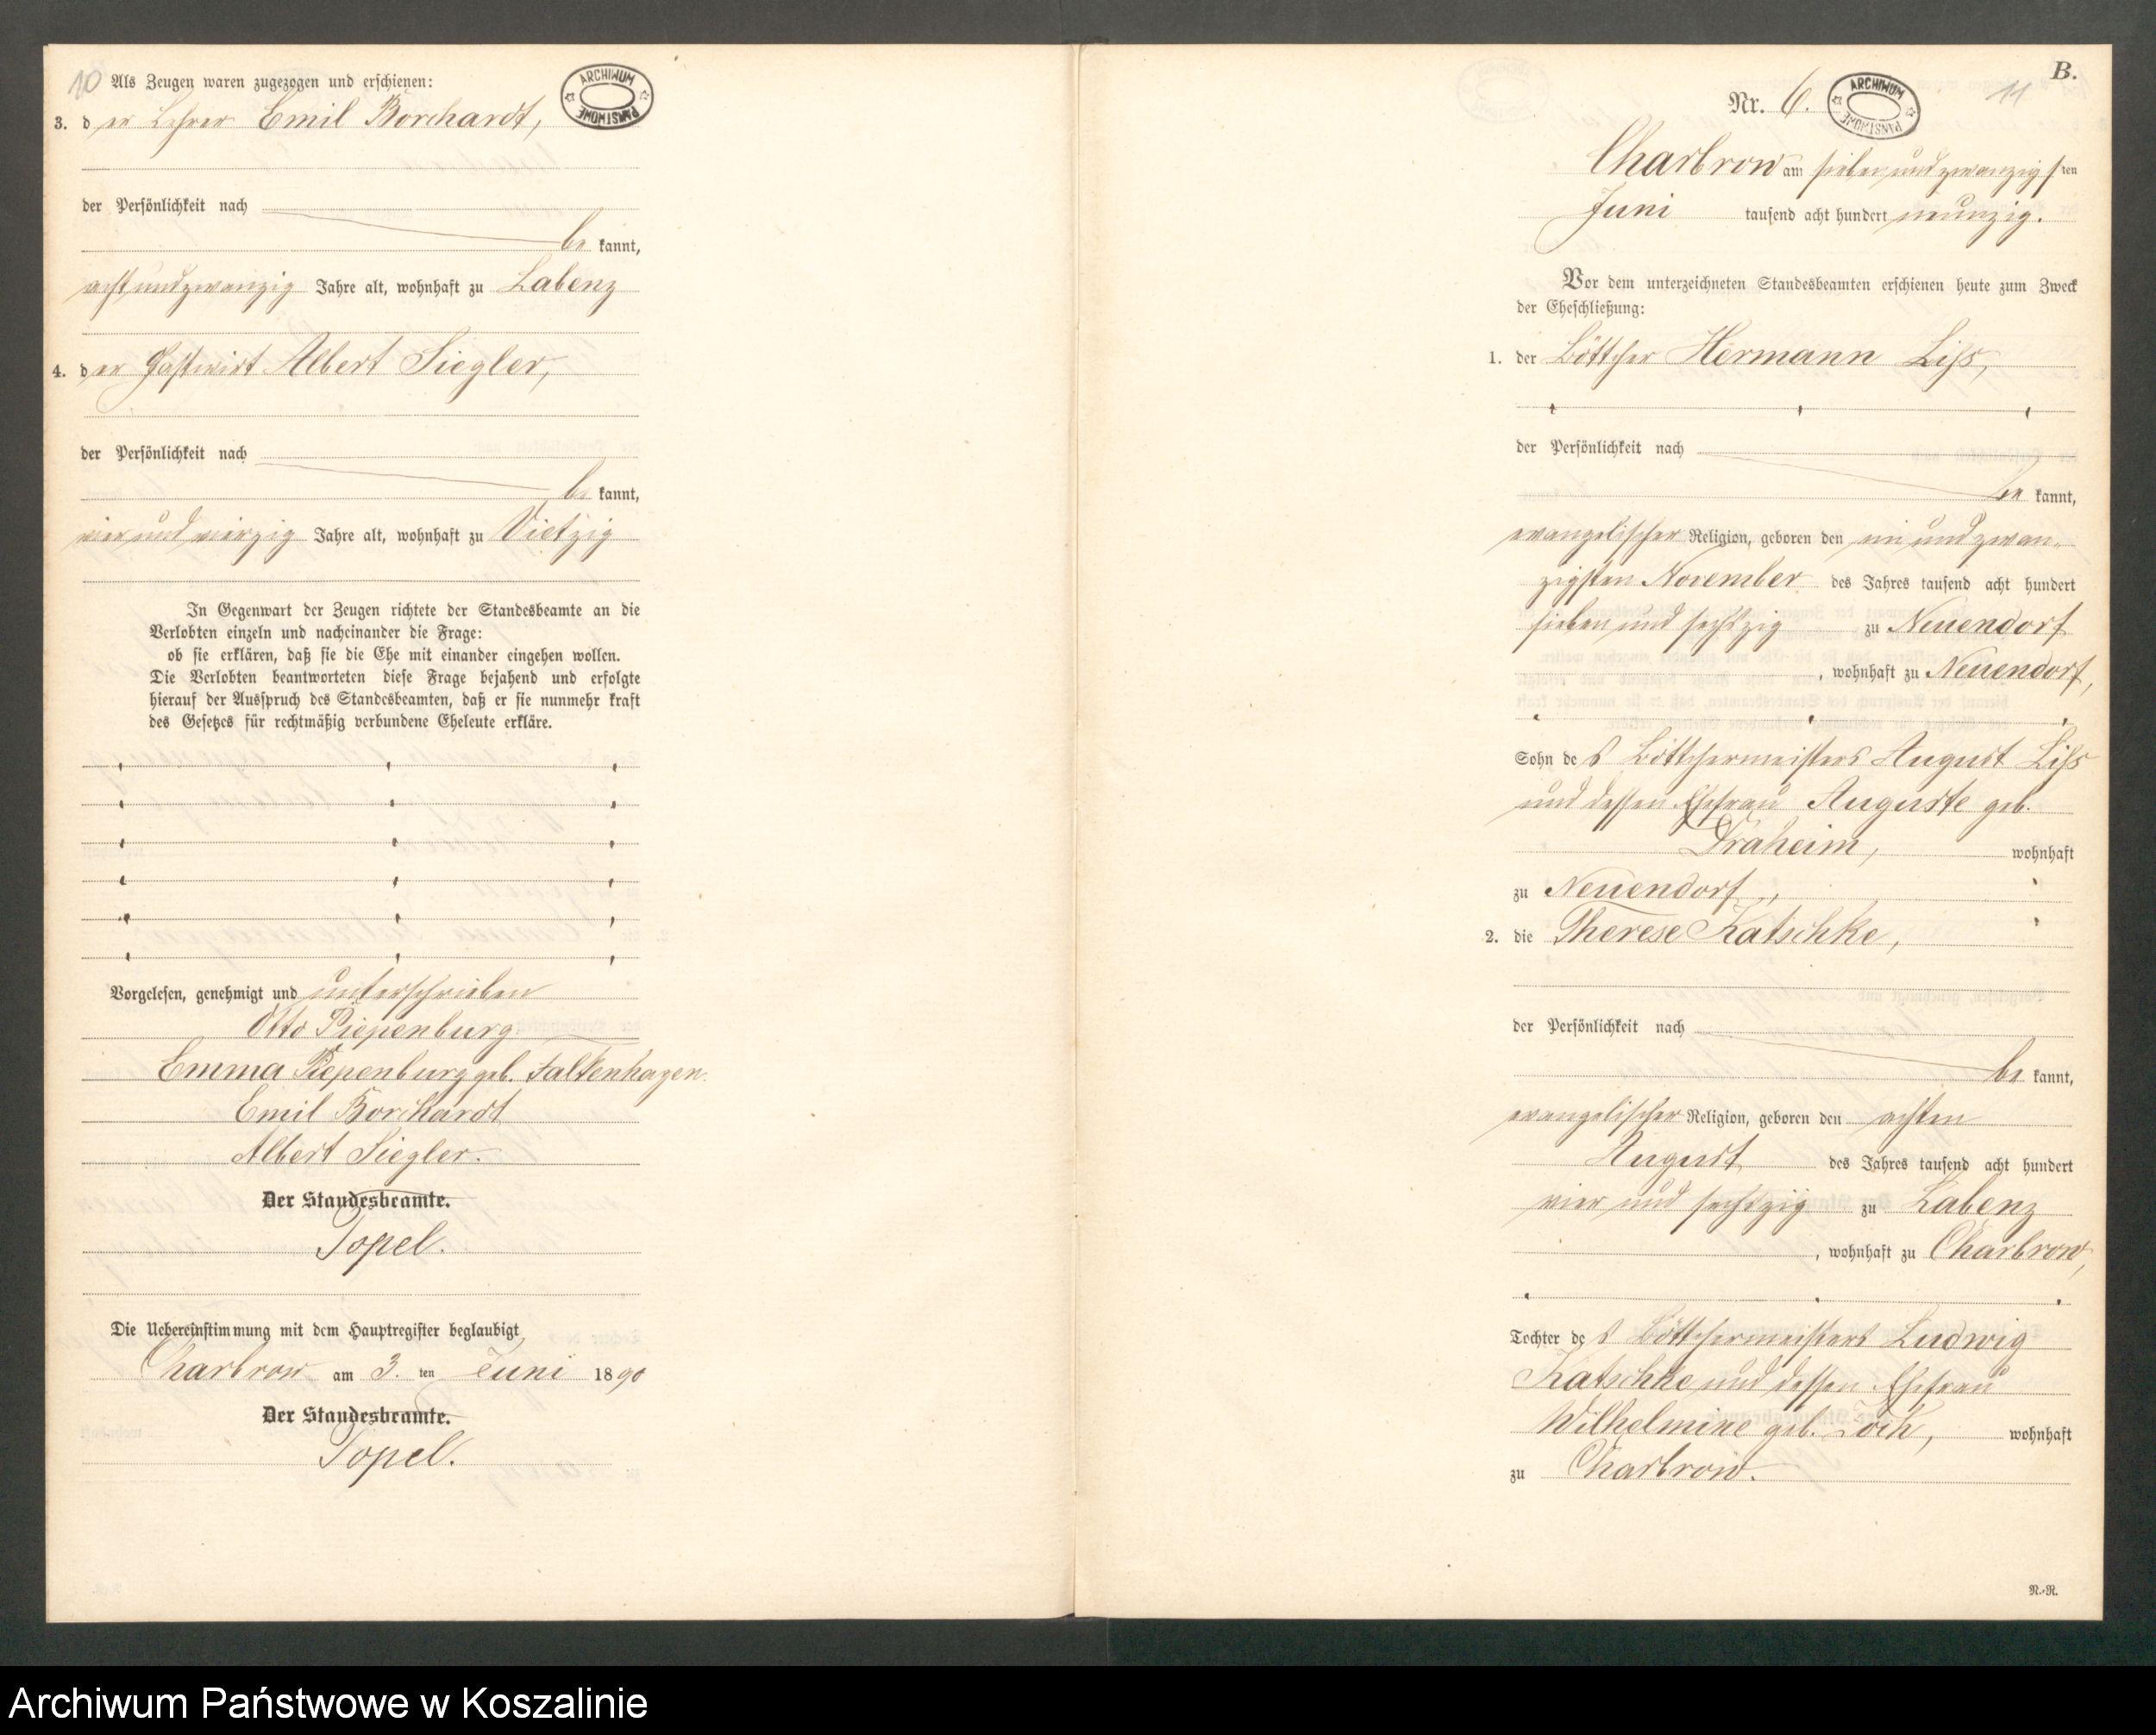 10 Als Zeugen waren zugezogen und erschienen:
ARCHIWUM PAŃSTWOWE
3. der Lehrer Emil Borchardt,
der Persönlichkeit nach
be kannt,
acht und zwanzig Jahre alt, wohnhaft zu Labenz
4. der Gastwirt Albert Siegler,
der Persönlichkeit nach
be kannt,
vier und vierzig Jahre alt, wohnhaft zu Vietzig
In Gegenwart der Zeugen richtete der Standesbeamte an die
Verlobten einzeln und nacheinander die Frage:
ob sie erklären, daß sie die Ehe mit einander eingehen wollen.
Die Verlobten beantworteten diese Frage bejahend und erfolgte
hierauf der Ausspruch des Standesbeamten, daß er sie nunmehr kraft
des Gesetzes für rechtmäßig verbundene Eheleute erkläre.
Vorgelesen, genehmigt und unterschrieben
Otto Piepenburg
Emma Piepenburg geb. Falkenhagen.
Emil Borchardt
Albert Siegler.
Der Standesbeamte.
Topel.
Die Uebereinstimmung mit dem Hauptregister beglaubigt
Charbrow am 3. ten Juni 1890
Der Standesbeamte.
Topel.
B.
Nr. 6.
ARCHIWUM PAŃSTWOWE
11
Charbrow am sieben und zwanzigsten
Juni tausend acht hundert neunzig.
Vor dem unterzeichneten Standesbeamten erschienen heute zum Zweck
der Eheschließung:
1. der Böttcher Hermann Liss,
der Persönlichkeit nach
be kannt,
evangelischer Religion, geboren den ein und zwan-
zigsten November des Jahres tausend acht hundert
sieben und sechszig zu Neuendorf
, wohnhaft zu Neuendorf,
Sohn des Böttchermeisters August Liss
und dessen Ehefrau Auguste geb.
Draheim, wohnhaft
zu Neuendorf,
2. die Therese Katschke,
der Persönlichkeit nach
be kannt,
evangelischer Religion, geboren den achten
August des Jahres tausend acht hundert
vier und sechszig zu Labenz
, wohnhaft zu Charbrow,
Tochter des Böttchermeisters Ludwig
Katschke und dessen Ehefrau
Wilhelmine geb. wohnhaft
zu Charbrow.
N.-R.
Archiwum Państwowe w Koszalinie